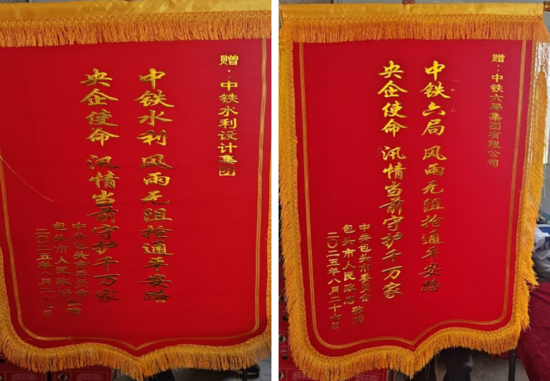 赠：中铁水利设计集团
中铁水利 风雨无阻抢通平安路
央企使命 汛情当前守护千万家
中共包头市委员会
包头市人民政府
二〇二五年八月二十七日
赠：中铁六局集团有限公司
中铁六局 风雨无阻抢通平安路
央企使命 汛情当前守护千万家
中共包头市委员会
包头市人民政府
二〇二五年八月二十七日